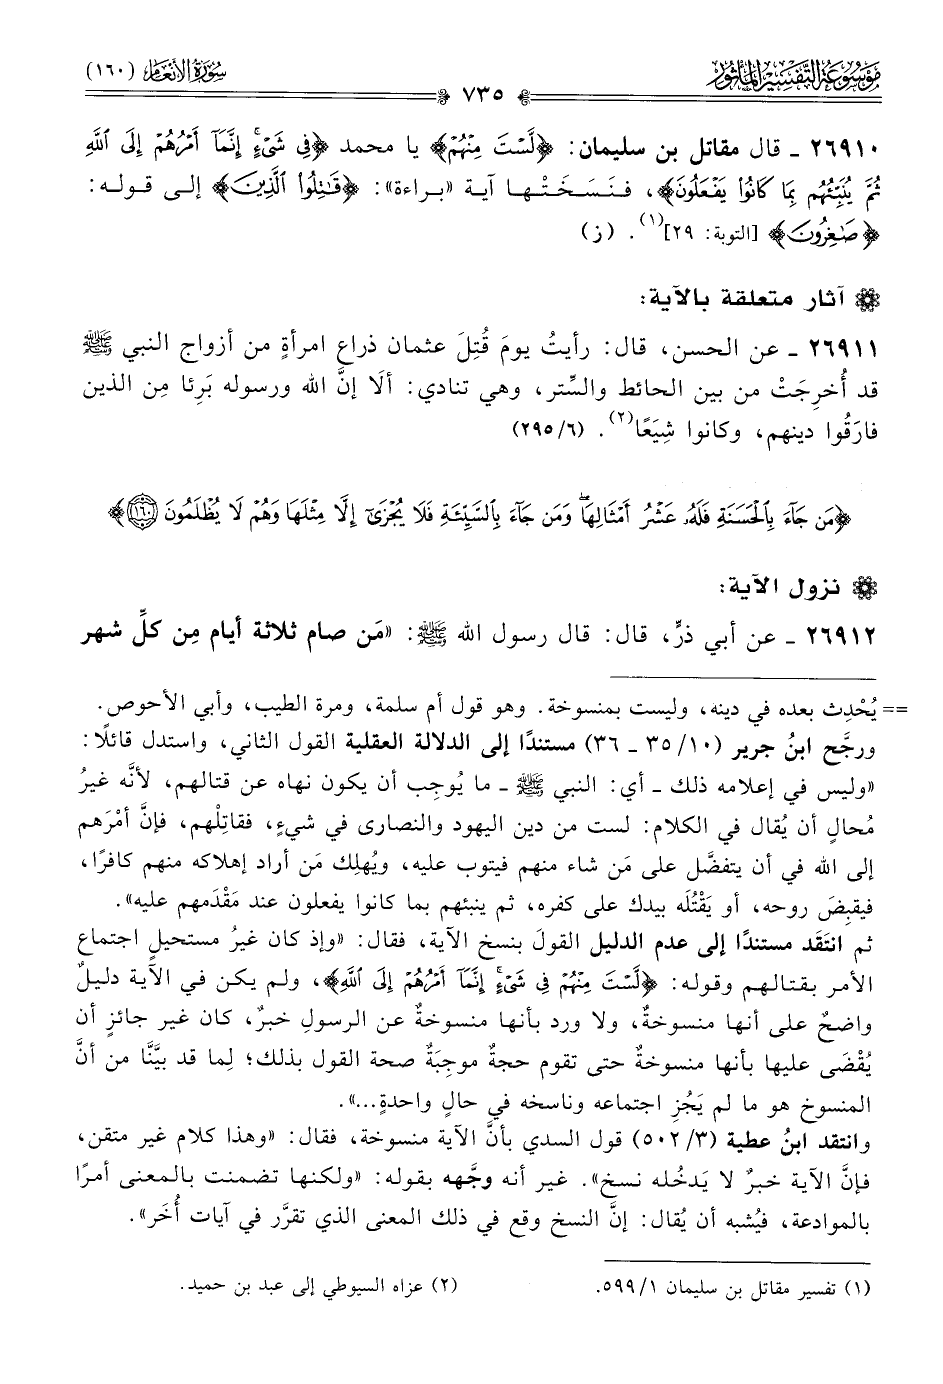 موسوعة التفسير المأثور
سورة الأنعام (١٦٠)
٧٣٥
٢٦٩١٠ ـ قال مقاتل بن سليمان: ﴿لَّسْتَ مِنْهُمْ﴾ يا محمد ﴿فِى شَىْءٍ إِنَّمَآ أَمْرُهُمْ إِلَى ٱللَّهِ
ثُمَّ يُنَبِّئُهُم بِمَا كَانُوا۟ يَفْعَلُونَ﴾، فنَسَخَتْها آية «براءة»: ﴿قَـٰتِلُوا۟ ٱلَّذِينَ﴾ إلى قوله:
﴿صَـٰغِرُونَ﴾ [التوبة: ٢٩](١). (ز)
آثار متعلقة بالآية:
٢٦٩١١ ـ عن الحسن، قال: رأيتُ يومَ قُتِلَ عثمان ذراع امرأةٍ من أزواج النبي ﷺ
قد أُخرِجَتْ من بين الحائط والسِّتر، وهي تنادي: ألَا إنَّ الله ورسوله بَرِئا مِن الذين
فارَقُوا دينهم، وكانوا شِيَعًا(٢). (٢٩٥/٦)
﴿مَن جَآءَ بِٱلْحَسَنَةِ فَلَهُۥ عَشْرُ أَمْثَالِهَا ۖ وَمَن جَآءَ بِٱلسَّيِّئَةِ فَلَا يُجْزَىٰٓ إِلَّا مِثْلَهَا وَهُمْ لَا يُظْلَمُونَ ١٦٠﴾
نزول الآية:
٢٦٩١٢ ـ عن أبي ذرٍّ، قال: قال رسول الله ﷺ: «مَن صام ثلاثة أيام مِن كلِّ شهر
== يُحْدِث بعده في دينه، وليست بمنسوخة. وهو قول أم سلمة، ومرة الطيب، وأبي الأحوص.
ورجَّح ابنُ جرير (١٠/ ٣٥ ـ ٣٦) مستندًا إلى الدلالة العقلية القول الثاني، واستدل قائلًا:
«وليس في إعلامه ذلك ـ أي: النبي ﷺ ـ ما يُوجِب أن يكون نهاه عن قتالهم، لأنَّه غيرُ
مُحالٍ أن يُقال في الكلام: لست من دين اليهود والنصارى في شيءٍ، فقاتِلْهم، فإنَّ أمْرَهم
إلى الله في أن يتفضَّل على مَن شاء منهم فيتوب عليه، ويُهلِك مَن أراد إهلاكه منهم كافرًا،
فيقبِضَ روحه، أو يَقْتُلَه بيدك على كفره، ثم ينبئهم بما كانوا يفعلون عند مَقْدَمهم عليه».
ثم انتَقَد مستندًا إلى عدم الدليل القولَ بنسخ الآية، فقال: «وإذ كان غيرُ مستحيلٍ اجتماع
الأمر بقتالهم وقوله: ﴿لَّسْتَ مِنْهُمْ فِى شَىْءٍ ۚ إِنَّمَآ أَمْرُهُمْ إِلَى ٱللَّهِ﴾، ولم يكن في الآية دليلٌ
واضحٌ على أنها منسوخةٌ، ولا ورد بأنها منسوخةٌ عن الرسولِ خبرٌ، كان غير جائزٍ أن
يُقْضَى عليها بأنها منسوخةٌ حتى تقوم حجةٌ موجِبَةٌ صحة القول بذلك؛ لِما قد بيَّنَّا من أنَّ
المنسوخ هو ما لم يَجُزِ اجتماعه وناسخه في حالٍ واحدةٍ...».
وانتقد ابنُ عطية (٥٠٢/٣) قول السدي بأنَّ الآية منسوخة، فقال: «وهذا كلام غير متقن،
فإنَّ الآية خبرٌ لا يَدخُله نسخ». غير أنه وجَّهه بقوله: «ولكنها تضمنت بالمعنى أمرًا
بالموادعة، فيُشبه أن يُقال: إنَّ النسخ وقع في ذلك المعنى الذي تقرَّر في آيات أُخَر».
(١) تفسير مقاتل بن سليمان ٥٩٩/١.
(٢) عزاه السيوطي إلى عبد بن حميد.